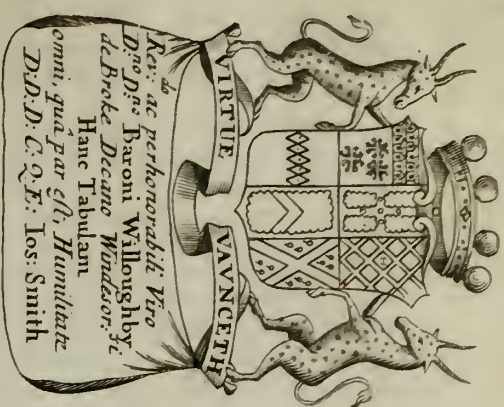 VIRTUE VAVNCETH
Rev:do ac perhonorabili Viro
D:no D:no Baroni Willoughby
de Broke Decano Windesor:si
Hanc Tabulam
omni, quâ par est, Humilitate
D:D:D: C:Q:E: Ios: Smith